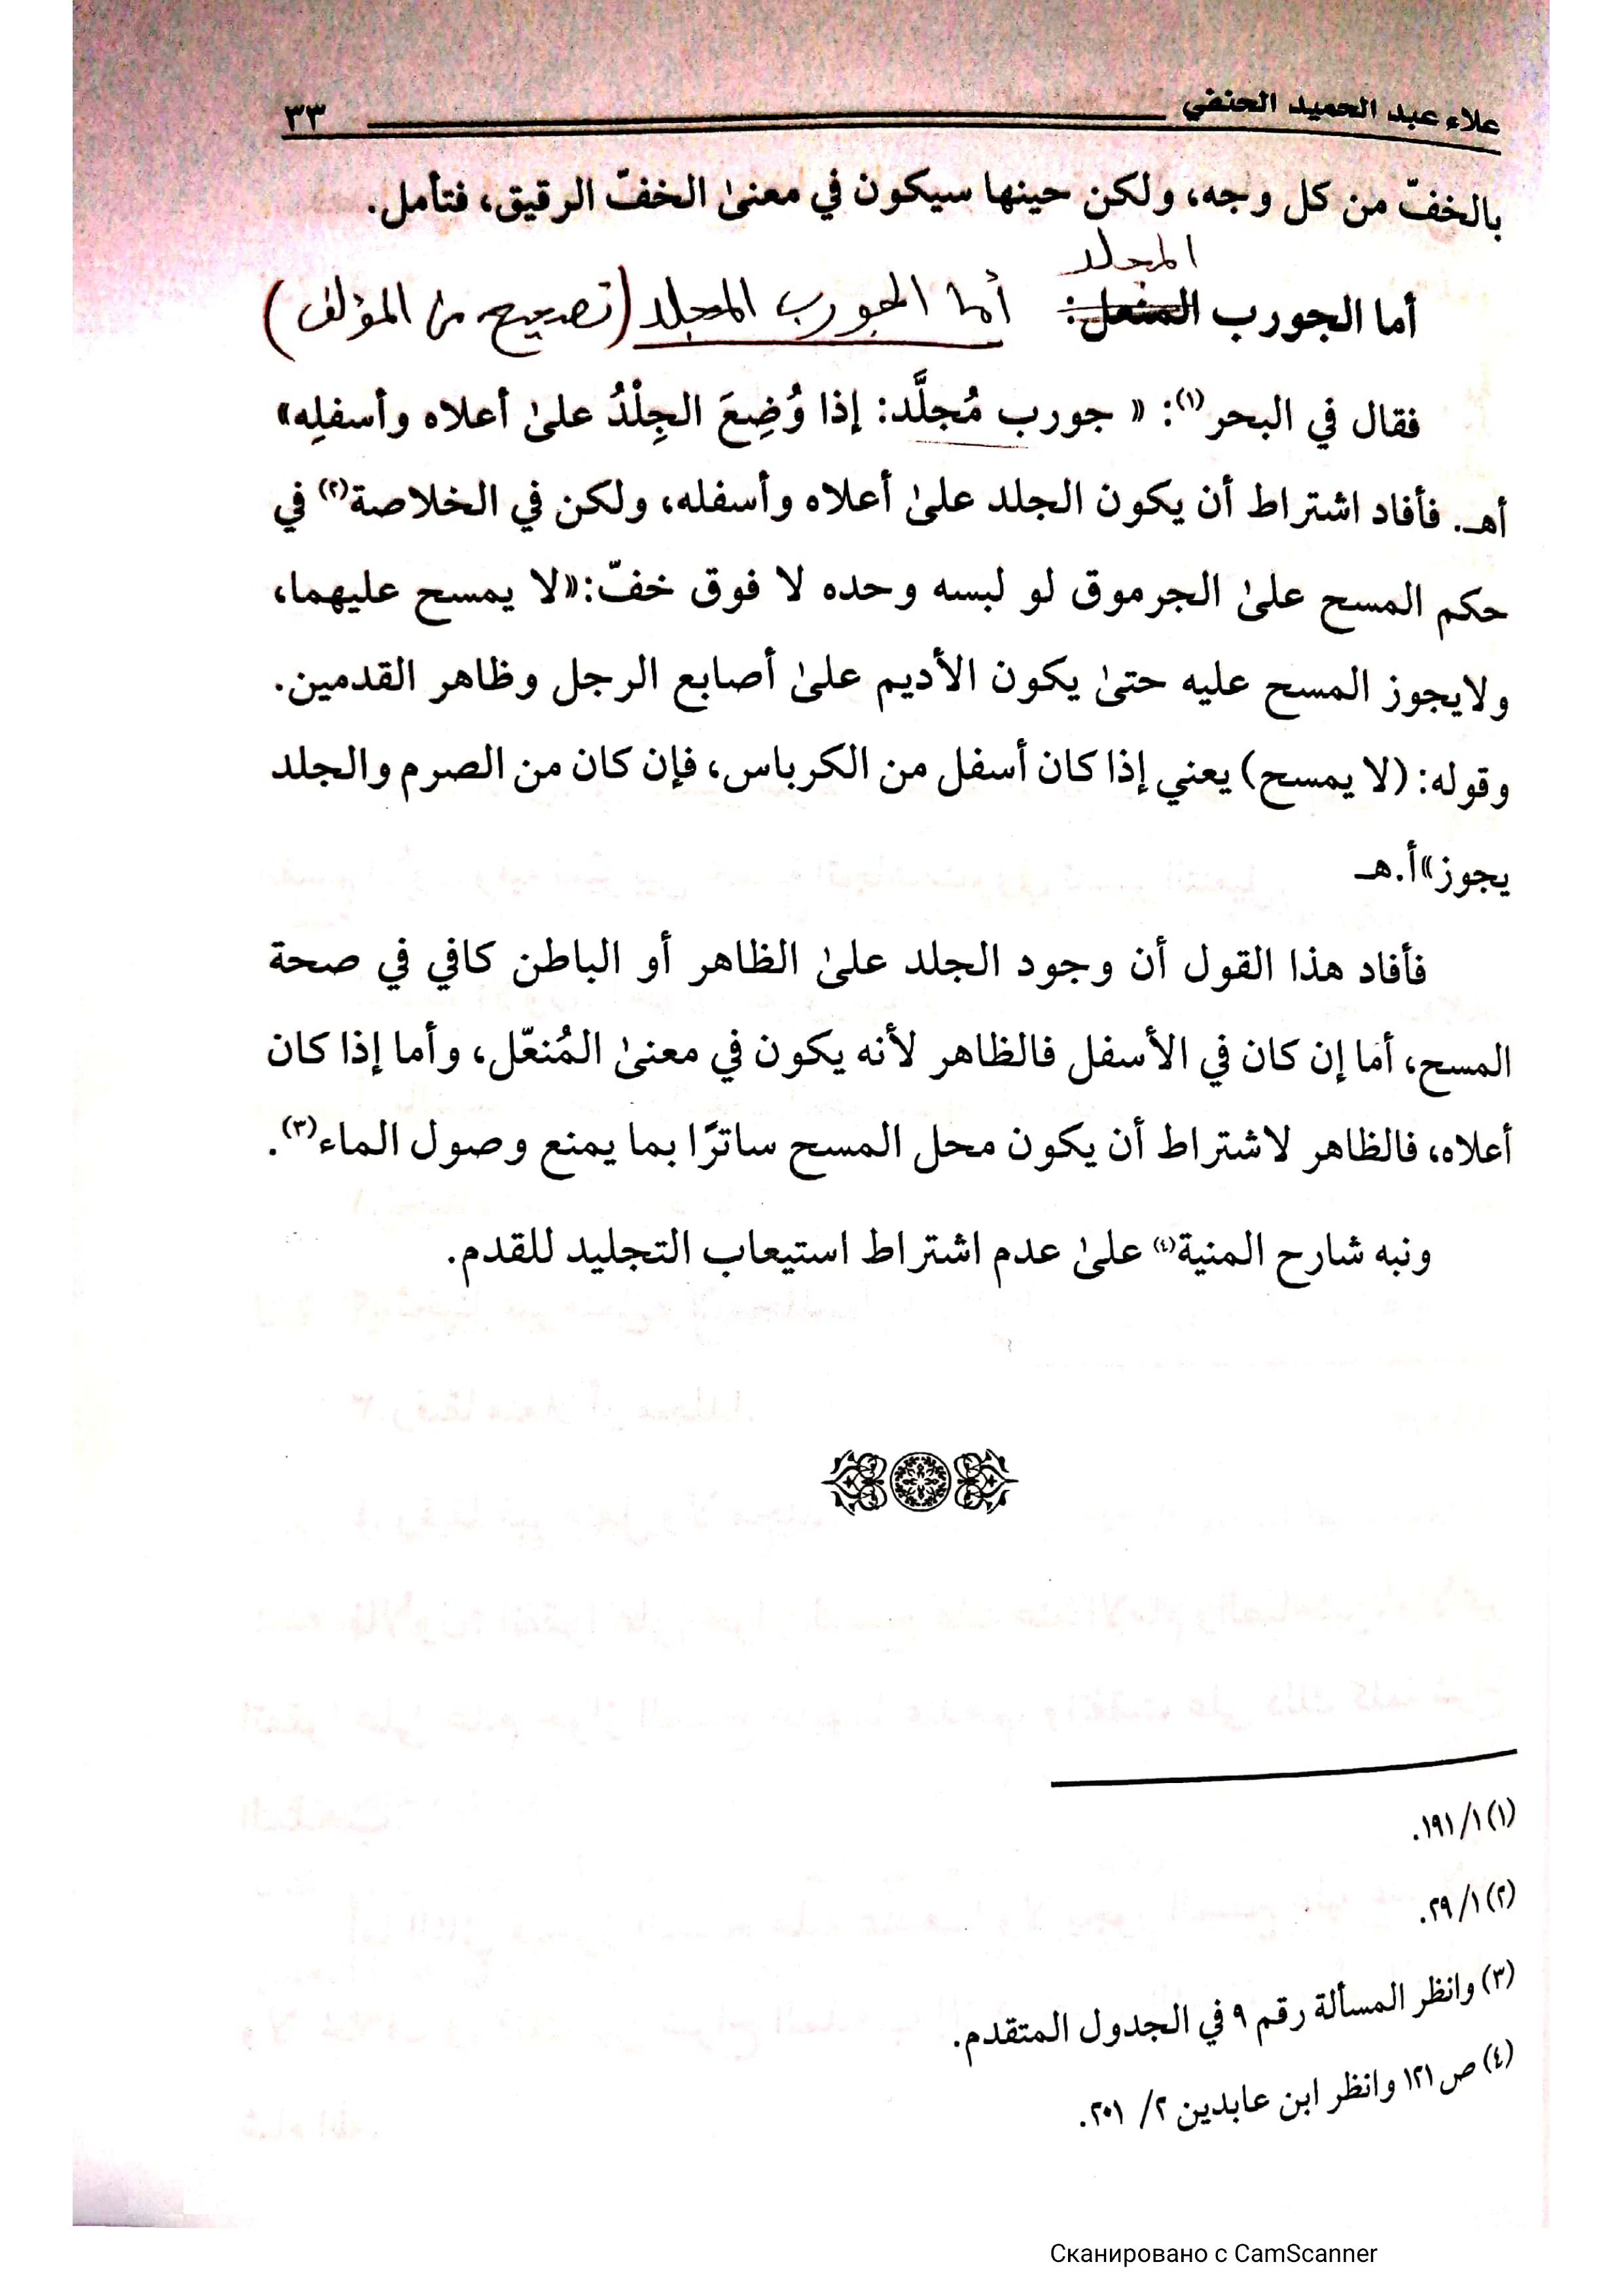 علاء عبد الحميد الحنفي ٣٣
بالخفّ من كل وجه، ولكن حينها سيكون في معنىٰ الخفّ الرقيق، فتأمل.
المجلد
أما الجورب المنعل: أما الجورب المجلد (تصحيح من المؤلف)
فقال في البحر(١): « جورب مُجلَّد: إذا وُضِعَ الجِلْدُ علىٰ أعلاه وأسفلِه»
أهـ. فأفاد اشتراط أن يكون الجلد علىٰ أعلاه وأسفله، ولكن في الخلاصة(٢) في
حكم المسح علىٰ الجرموق لو لبسه وحده لا فوق خفّ:«لا يمسح عليهما،
ولايجوز المسح عليه حتىٰ يكون الأديم علىٰ أصابع الرجل وظاهر القدمين.
وقوله: (لا يمسح) يعني إذا كان أسفل من الكرباس، فإن كان من الصرم والجلد
يجوز»أ.هـ
فأفاد هذا القول أن وجود الجلد علىٰ الظاهر أو الباطن كافي في صحة
المسح، أما إن كان في الأسفل فالظاهر لأنه يكون في معنىٰ المُنعّل، وأما إذا كان
أعلاه، فالظاهر لاشتراط أن يكون محل المسح ساترًا بما يمنع وصول الماء(٣).
ونبه شارح المنية(٤) علىٰ عدم اشتراط استيعاب التجليد للقدم.
(١) ١/ ١٩١.
(٢) ١/ ٢٩.
(٣) وانظر المسألة رقم ٩ في الجدول المتقدم.
(٤) ص ١٢١ وانظر ابن عابدين ٢/ ٢٠١.
Сканировано с CamScanner